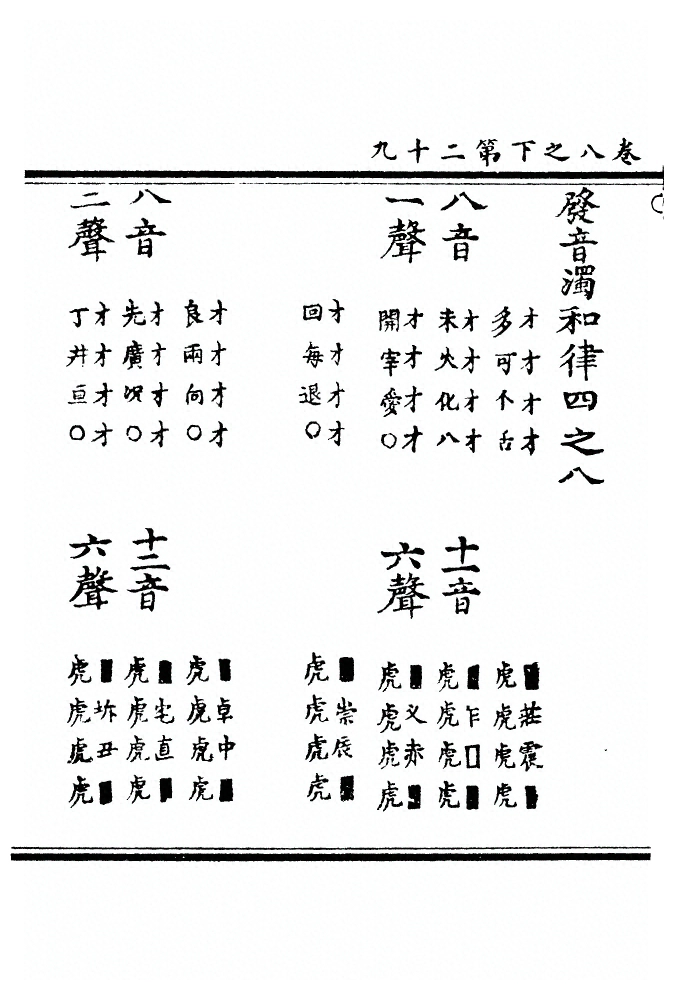 卷八之下第二十九
發音濁和律四之八
八音
一聲
才才才才
多可个舌
才才才才
禾火化八
才才才才
開宰愛○
才才才才
回每退○
十一音
六聲
■莊震■
虎虎虎虎
■乍□■
虎虎虎虎
■叉赤■
虎虎虎虎
■崇辰■
虎虎虎虎
八音
二聲
才才才才
良兩向○
才才才才
光廣况○
才才才才
丁井亘○
十二音
六聲
■卓中■
虎虎虎虎
■宅直■
虎虎虎虎
■坼丑■
虎虎虎虎